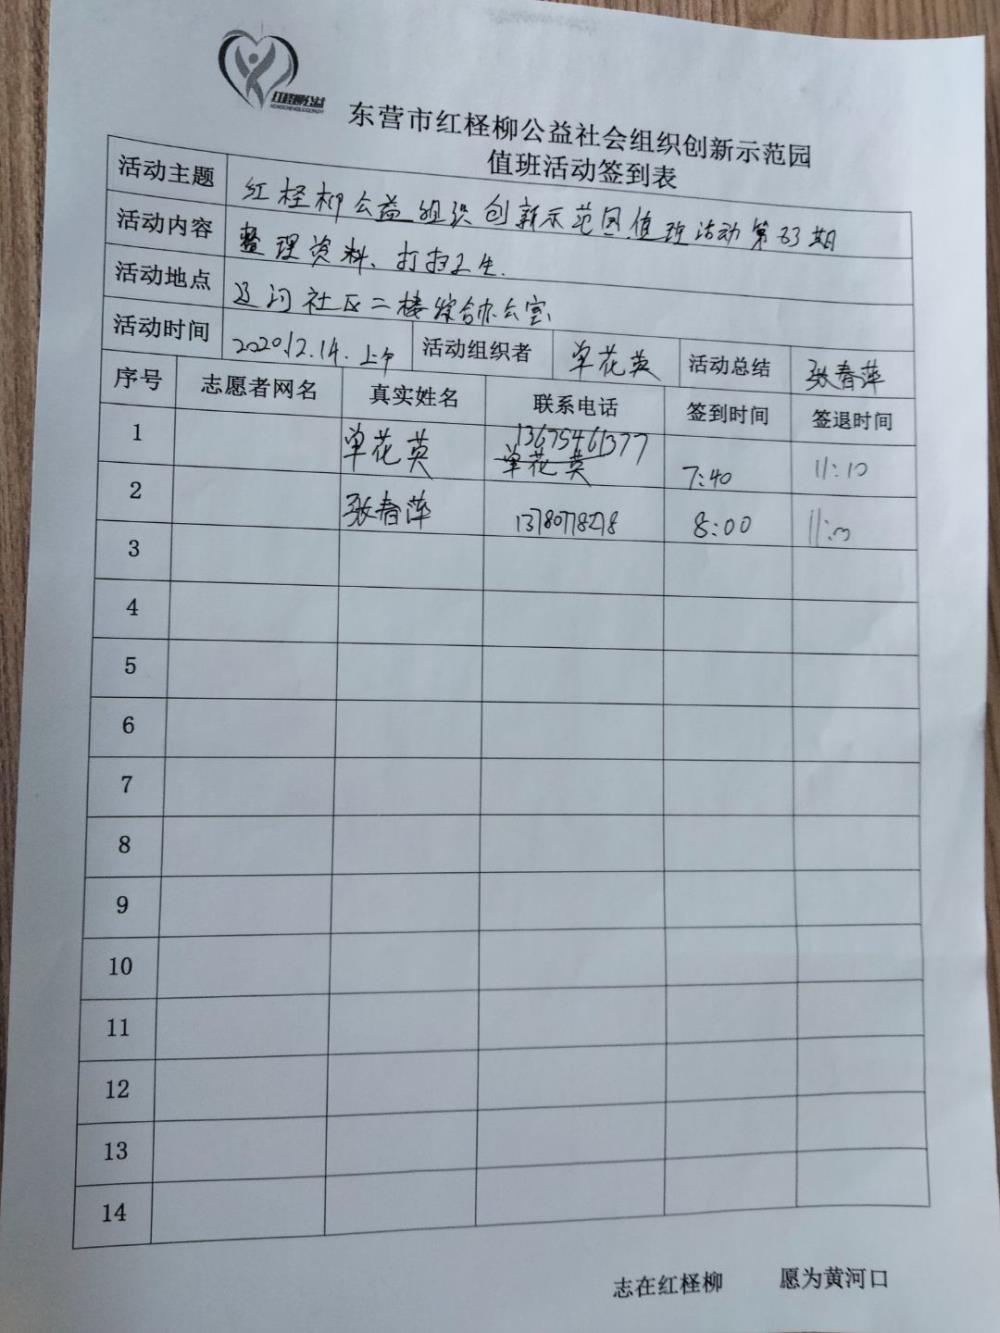 红柽柳公益
东营市红柽柳公益社会组织创新示范园
值班活动签到表
活动主题 红柽柳公益组织创新示范园值班活动第63期
活动内容 整理资料、打扫卫生.
活动地点 辽河社区二楼综合办公室
活动时间 2020.12.14.上午 活动组织者 单花英 活动总结 张春萍
序号 志愿者网名 真实姓名 联系电话 签到时间 签退时间
1 单花英 13675461377 单花英 7:40 11:10
2 张春萍 13780778278 8:00
3
4
5
6
7
8
9
10
11
12
13
14
志在红柽柳 愿为黄河口